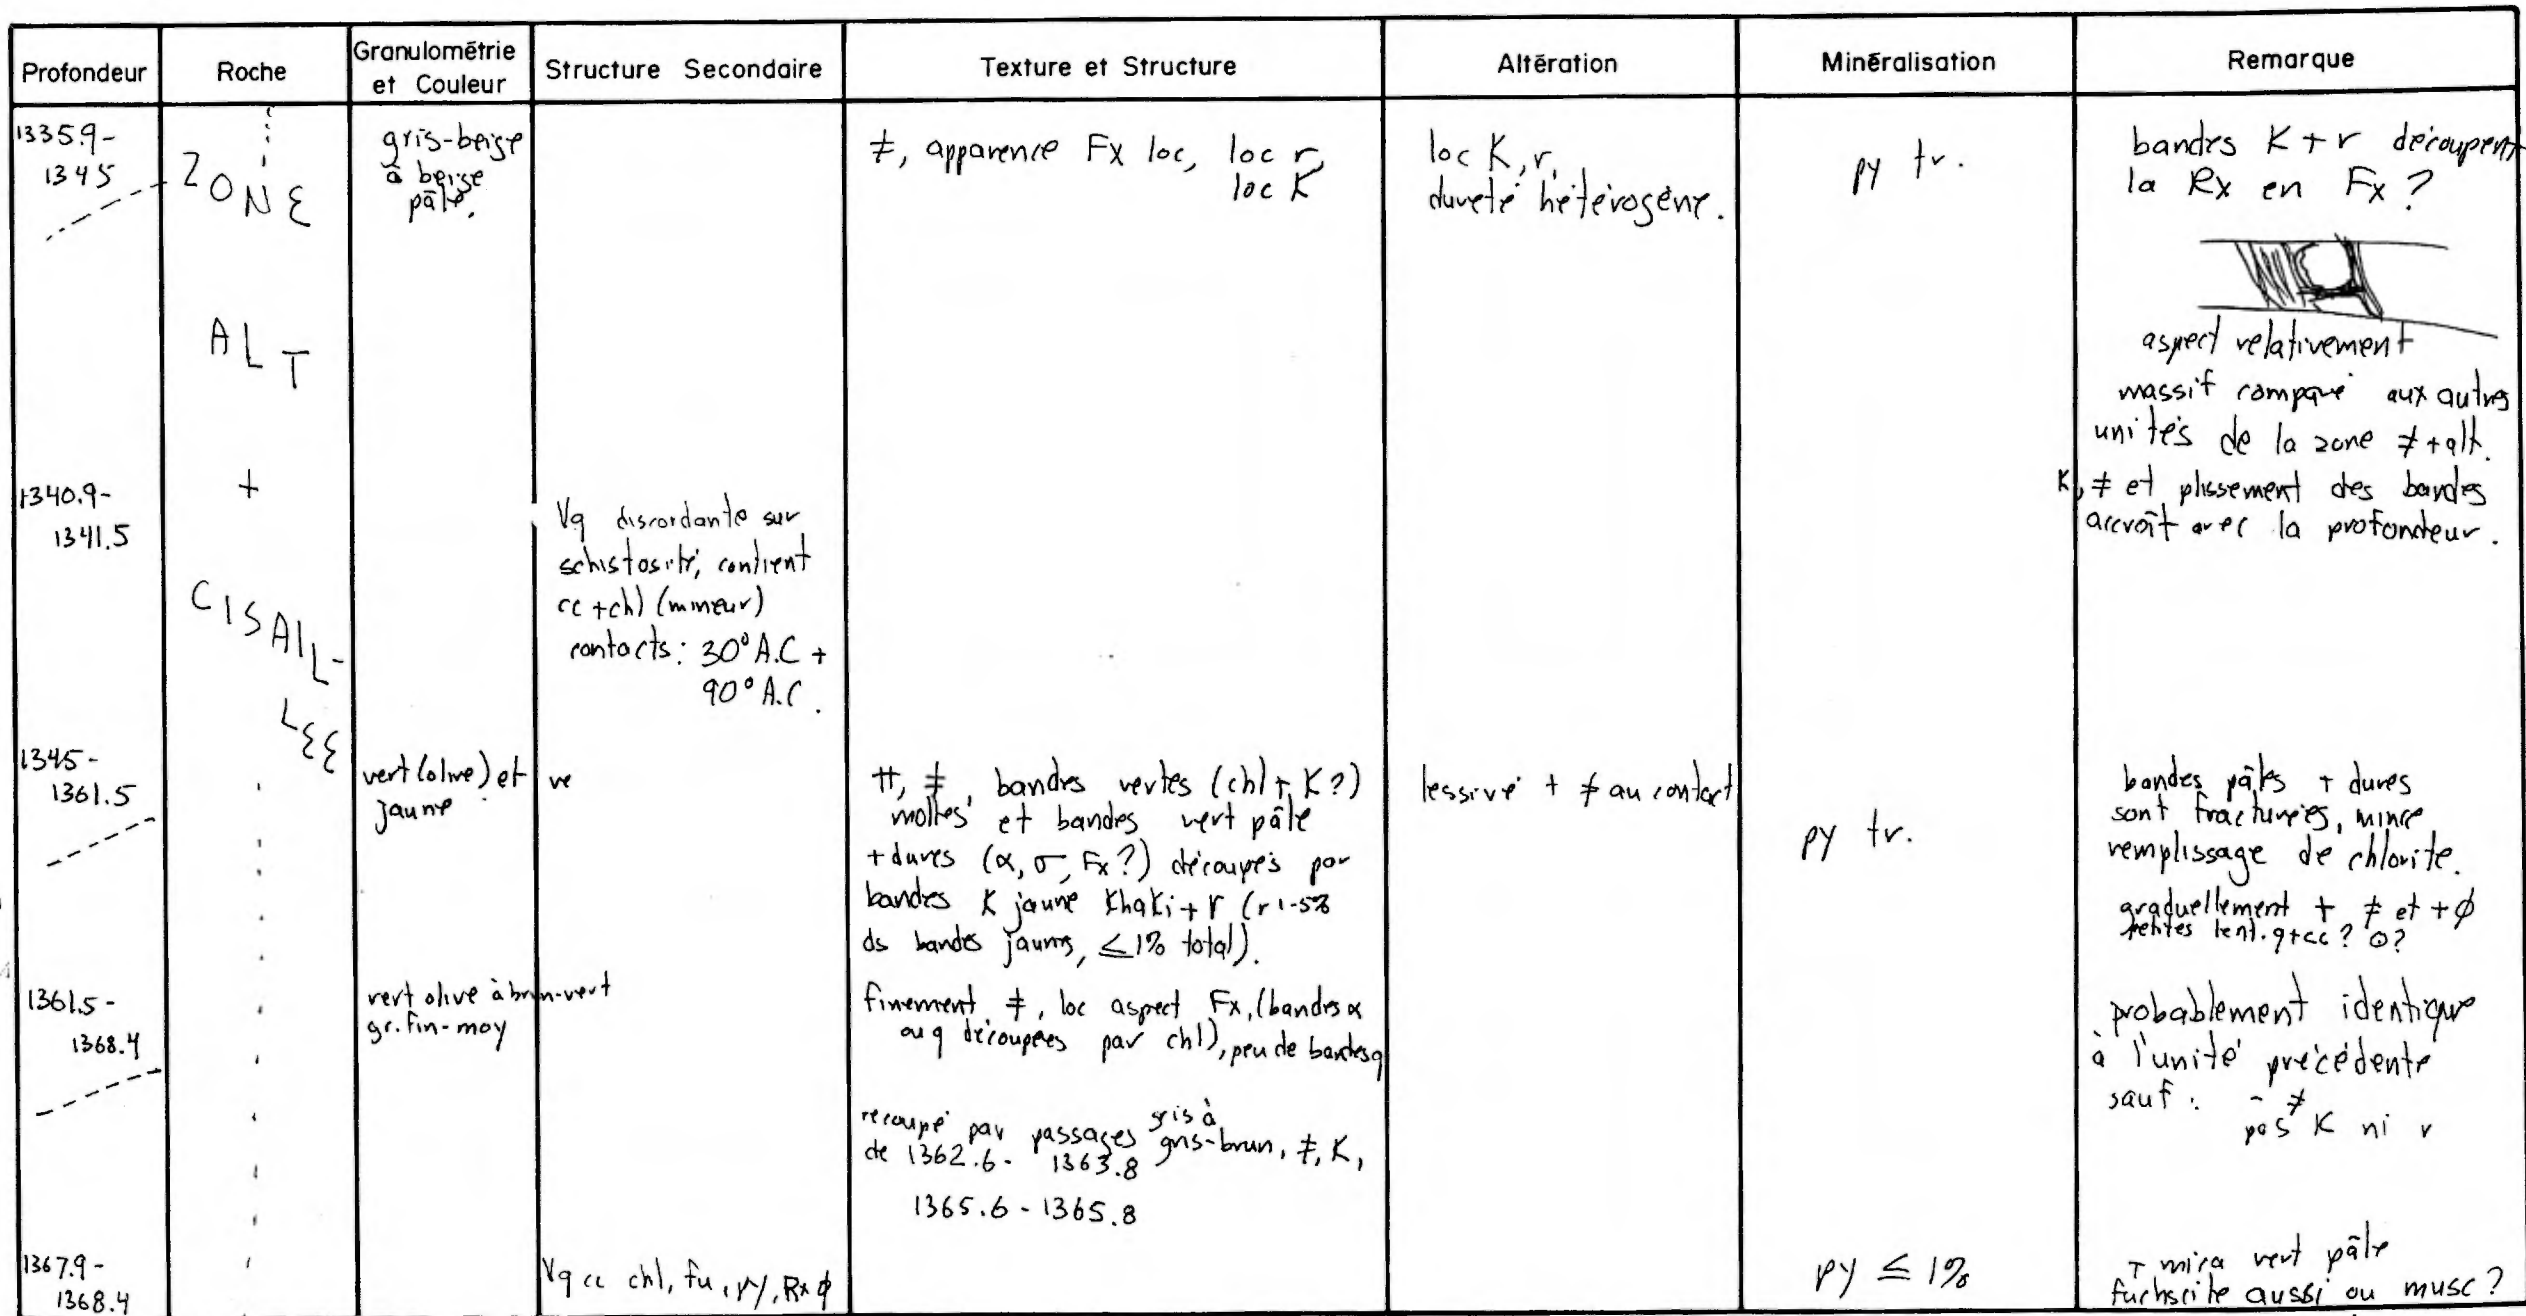 Profondeur
Roche
Granulométrie
et Couleur
Structure Secondaire
Texture et Structure
Altération
Minéralisation
Remarque
1335.9-
1345
ZONE
ALT
+
CISAIL-
LEE
gris-beige
à beige
pâle.
≠, apparence Fx loc, loc r,
loc K
loc K, r,
dureté hétérogène.
py tr.
bandes K + r découpent
la Rx en Fx ?
aspect relativement
massif comparé aux autres
unités de la zone ≠ + alt.
K, ≠ et plissement des bandes
accroît avec la profondeur.
1340.9-
1341.5
Vq discordante sur
schistosité, contient
cc + chl (mineur)
contacts: 30° A.C +
90° A.C.
1345-
1361.5
vert (olive) et
jaune
ve
, ≠, bandes vertes (chl + K?)
molles et bandes vert pâle
+ dures (α, σ, Fx?) découpés par
bandes K jaune Khaki + r (r 1-5%
ds bandes jaunes, ≤ 1% total).
lessivé + ≠ au contact
py tr.
bandes pâles + dures
sont fracturées, mince
remplissage de chlorite.
graduellement + ≠ et + φ
petites lent. q + cc?
1361.5-
1368.4
vert olive à brun-vert
gr. fin-moy
finement ≠, loc aspect Fx, (bandes α
ou q découpées par chl), peu de bandes q
recoupé par passages gris à
de 1362.6 - 1363.8 gris-brun, ≠, K,
1365.6 - 1365.8
probablement identique
à l'unité précédente
sauf : - ≠
pas K ni r
1367.9-
1368.4
Vq cc chl, fu, py, Rx φ
py ≤ 1%
+ mica vert pâle
fuchscite aussi ou musc ?